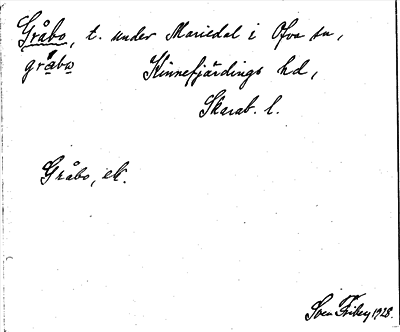 Gråbo, t. under Mariedal i Ova sn,
gråbo Kinnefjärdings hd,
Skarab. l.
Gråbo, ek.
Sven Friberg 1928